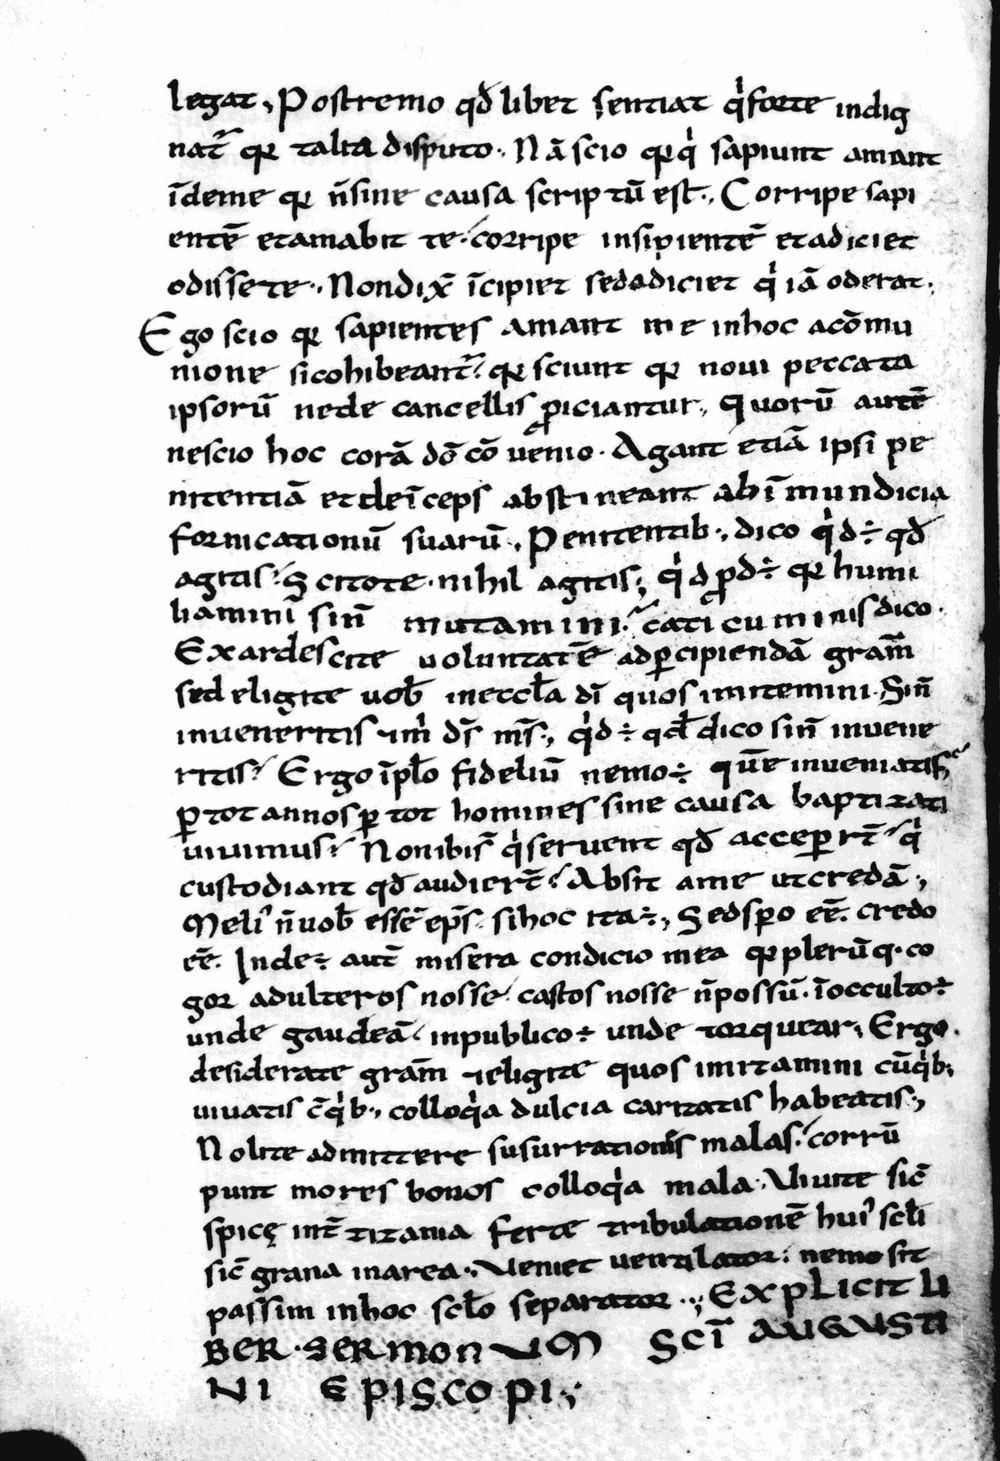 legat, Postremo qđ libet sentiat q̍ forte indig
nat̃ qr̃ talia disputo. Nā scio qr̃ q̍ sapiunt amant
īdeme qr̃ n̄ sine causa scriptū est. Corripe sapi
entē et amabit te. corripe insipientē et adiciet
odisse te. Non dix̄ īcipiet sed adiciet q̍ iā oderat.
Ego scio qr̃ sapientes amant me in hoc acōmu
nione si cohibeant̃. qr̃ sciunt qr̃ novi peccata
ipsorū ne de cancellis ꝓiciantur, quorū autē
nescio hoc corā dō cōvenio. Agant etiā ipsi pe
nitentiā et deīceps abstineant ab īmundicia
fornicationū suarū. Penitentib; dico q̍d ÷ qđ
agitis. Scitote nihil agitis; q̍d ꝓd÷ qr̃ humi
liamini sin̄ mutamini. caticuminis dico.
Exardescite voluntatē ad ꝑcipiendā gram̄
sed eligite vob̄ in eccl̄a dī quos imitemini. Sin̄
inveneritis im̍ dr̄ ms̄, q̍d ÷ qđ dico sin̄ invene
ritis. Ergo ī pl̄o fideliū nemo ÷ quē inveniatis
ꝑ tot annos ꝑ tot homines sine causa baptizati
vivimus. Non ibis̄ q̍ servent qđ acceꝑrt̃ q̍
custodiant qđ audiert̃. Absit a me ut credā;
Meli' n̄ vob̄ essē ep̄s. si hoc ita÷; Sed sꝑo eē. credo
eē. Inde÷ aut̄ misera condicio mea qr̃ plerūq. co
gor adulteros nosse. castos nosse n̄ possū. ī occulto ÷
unde gaudeā. in publico ÷ unde torquear; Ergo
desiderate gram̄ eligite quos imitamini cū q̍b;
vivatis c̄ q̍b; colloq̍a dulcia caritatis habeatis;
Nolite admittere susurrationis malas. corrū
punt mores bonos colloq̍a mala. Vivite sic̄
spicę int̄ zizania ferte tribulationē hui' scl̄i
sic̄ grana in area. Veniet ventilator. nemo sit
passim in hoc scl̄o separator. Explicit li
ber sermonum sc̄i augusti
ni episcopi;